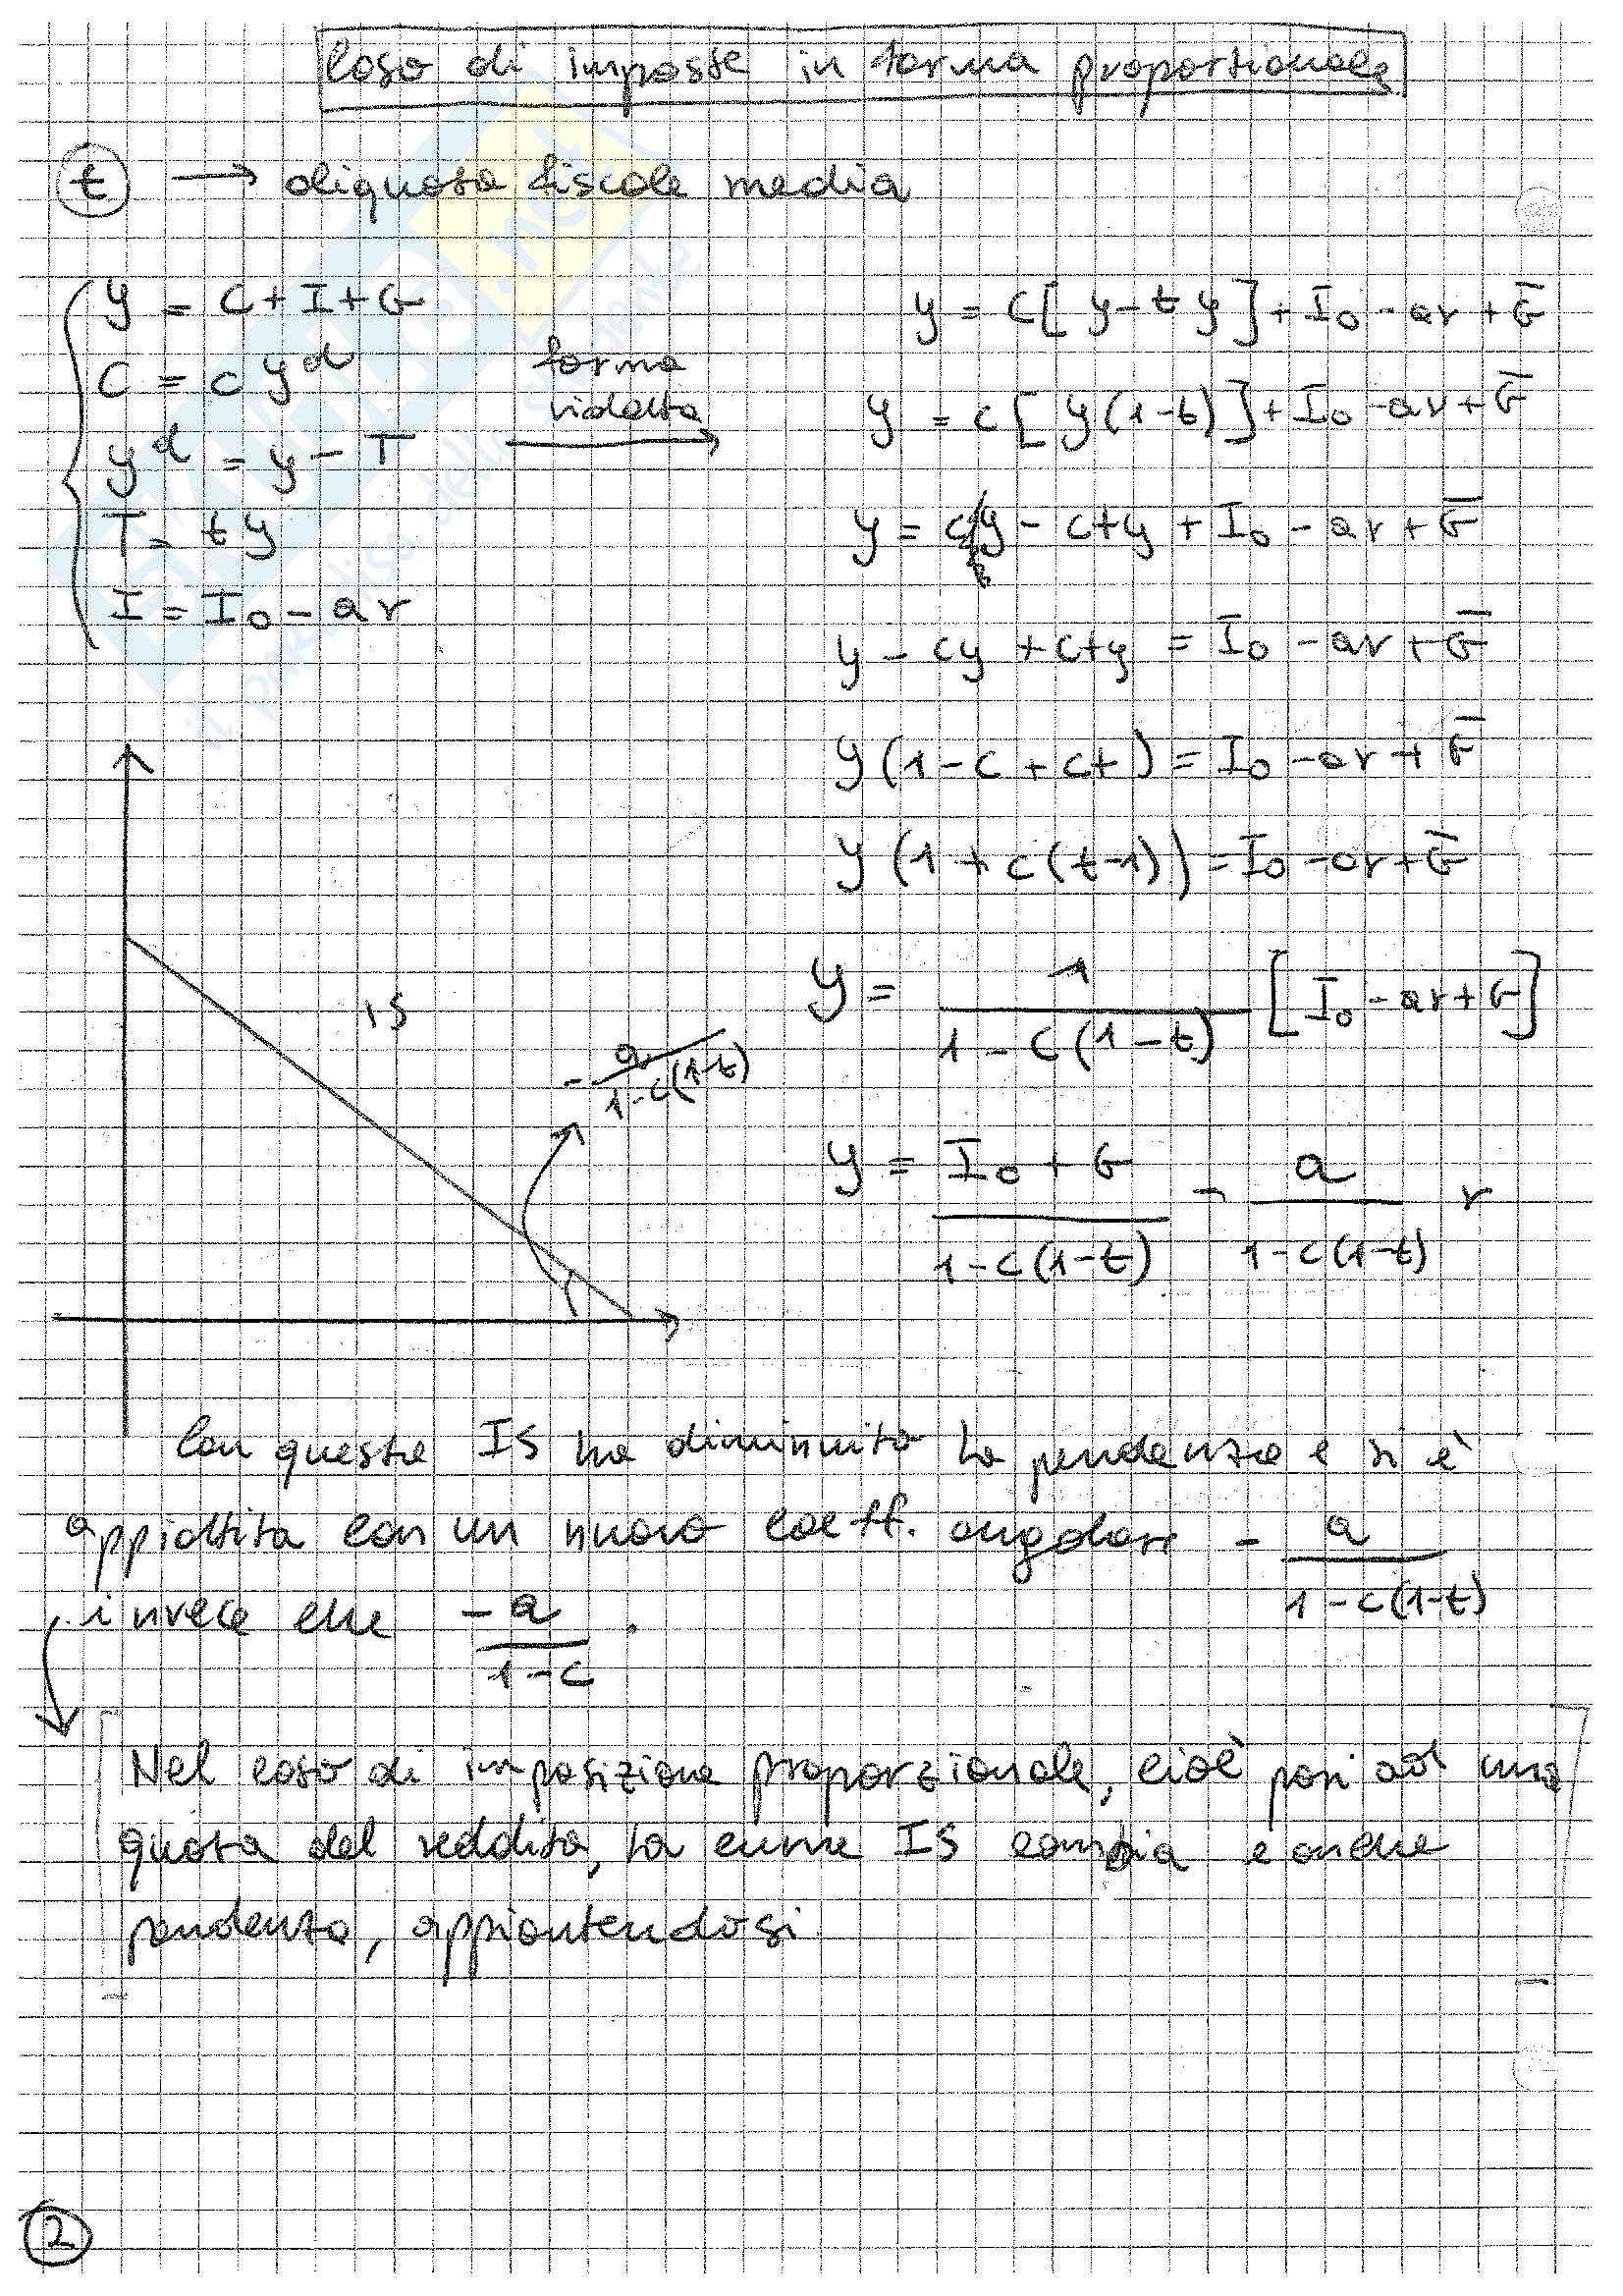 Caso di imposte in forma proporzionale
t → aliquota fiscale media
y = C + I + G
C = c y^d
y^d = y - T
T = ty
I = I₀ - ar
forma
ridotta
y = c[y - ty] + I₀ - ar + Ḡ
y = c[y(1-t)] + I₀ - ar + Ḡ
y = cy - cty + I₀ - ar + Ḡ
y - cy + cty = I₀ - ar + Ḡ
y(1 - c + ct) = I₀ - ar + Ḡ
y(1 + c(t-1)) = I₀ - ar + Ḡ
y = 1 / (1 - c(1-t)) [I₀ - ar + G]
y = (I₀ + G) / (1 - c(1-t)) - a / (1 - c(1-t)) r
IS
- a / (1 - c(1-t))
Con questa IS ha diminuito la pendenza e si è
appiattita con un nuovo coeff. angolare - a / (1 - c(1-t))
invece che - a / (1 - c).
Nel caso di imposizione proporzionale, cioè pari ad una
quota del reddito, la curva IS cambia e anche
pendenza, appiantendosi.
2
.net
il paradiso dello